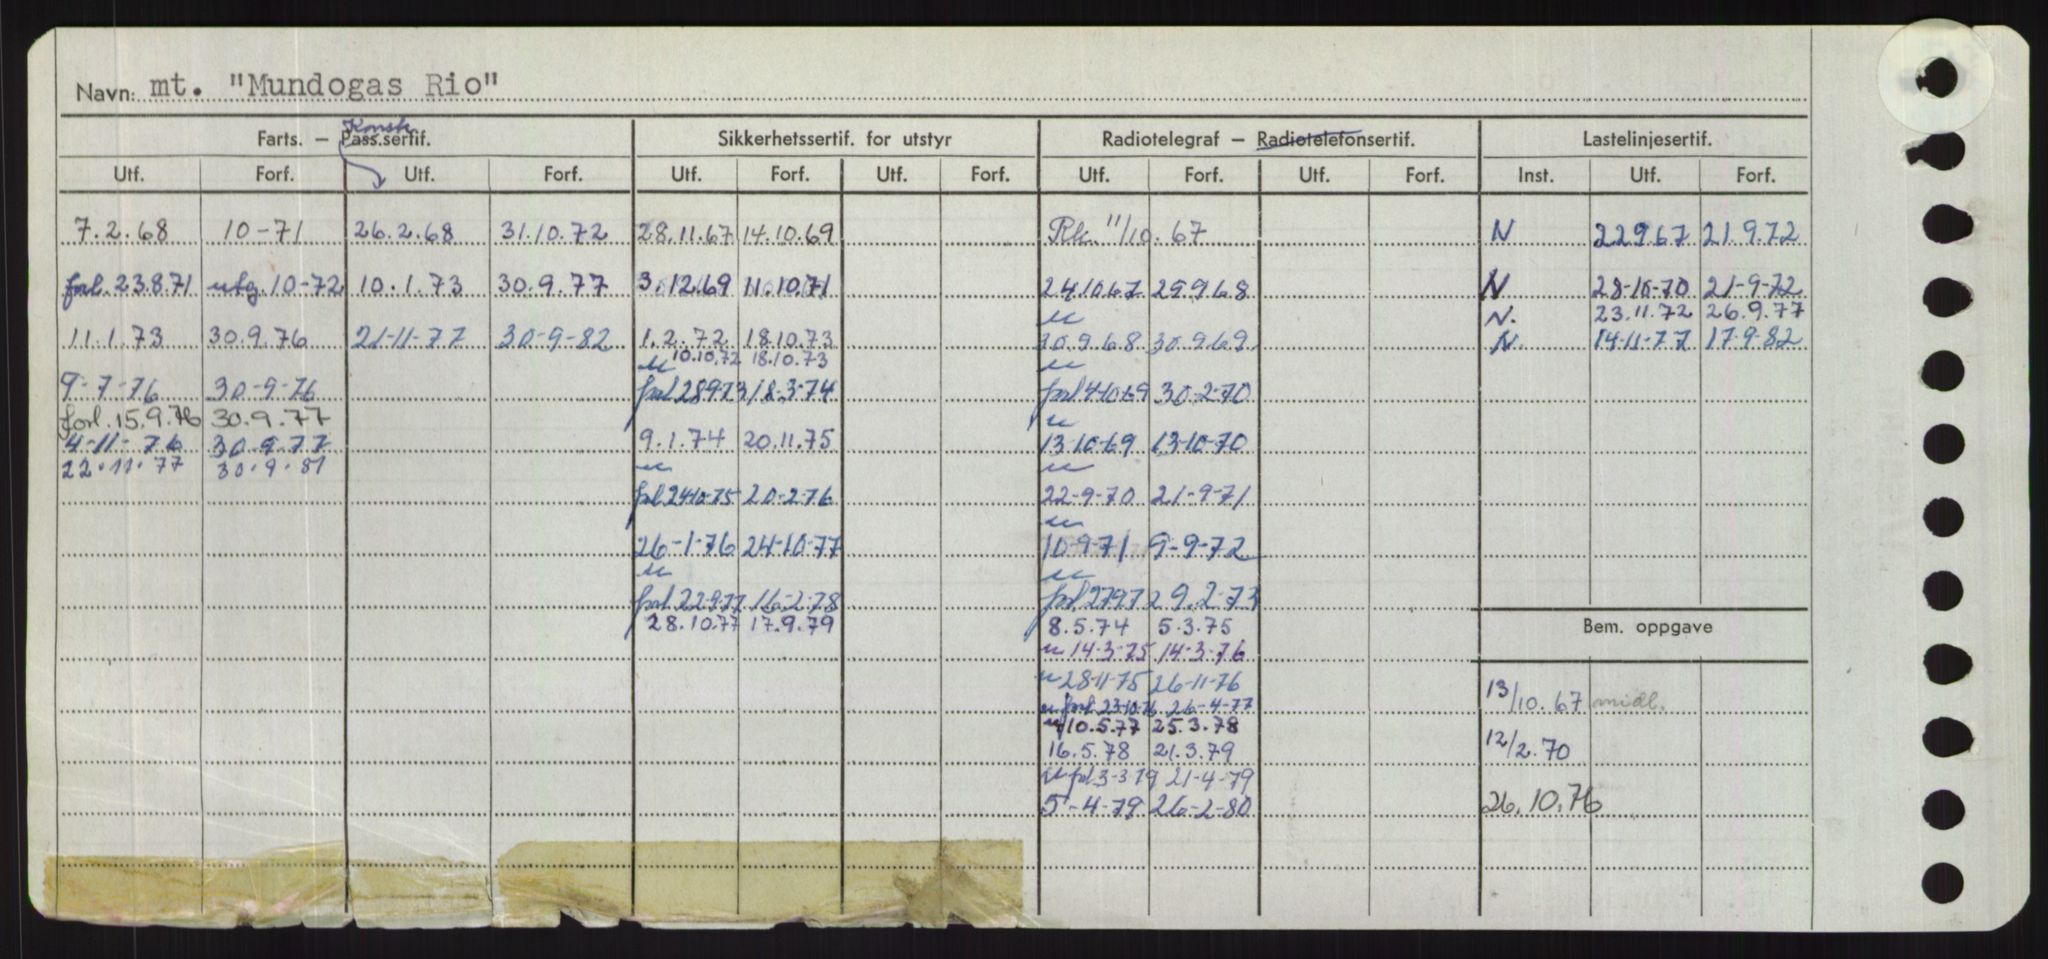 Navn: mt. "Mundogas Rio"
Farts. — Pass.sertif. Konstr. Sikkerhetssertif. for utstyr Radiotelegraf — Radiotelefonsertif. Lastelinjesertif.
Utf. Forf. Utf. Forf. Utf. Forf. Utf. Forf. Utf. Forf. Utf. Forf. Inst. Utf. Forf.
7.2.68 10-71 26.2.68 31.10.72 28.11.67 14.10.69 11/10.67 N 22967 21.9.72
forl. 23.8.71 utg. 10-72 10.1.73 30.9.77 3.12.69 11.10.71 24.10.67 29.9.68 N 28-10-70 21-9-72
u N. 23.11.72 26.9.77
11.1.73 30.9.76 21-11-77 30-9-82 1.2.72 18.10.73 30.9.68 30.9.69 N. 14-11-77 17-9-82
u 10.10.72 18.10.73 u
9-7-76 30-9-76 forl 28973 18.3-74 forl 4-10-69 30-2-70
forl. 15.9.76 30.9.77 u
4-11-76 30-9-77 9.1.74 20.11.75 13-10-69 13-10-70
22.11.77 30.9.81 u u
forl 24-10-75 20-2-76 22-9-70 21-9-71
u
26-1-76 24-10-77 10-9-71 9-9-72
u u
forl 22977 16-2-78 forl 27972 9.2-73
28.10.77 17.9.79 8.5.74 5.3.75 Bem. oppgave
u 14-3-75 14-3-76
u 28-11-75 26-11-76 13/10.67 midl.
u forl 23-10-76 26-4-77
u 10.5.77 25.3.78
16.5.78 21.3.79 12/2.70
u forl 3-3-79 21-4-79
5-4-79 26-2-80 26.10.76